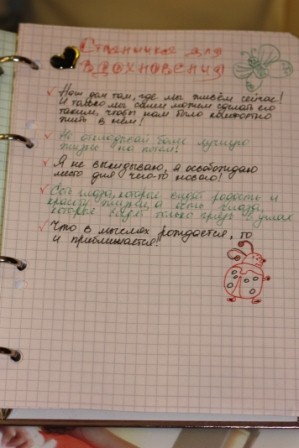 Страничка для
вдохновения
Наш дом там, где мы живём сейчас!
И только мы сами можем сделать его
таким, чтобы нам было комфортно
жить в нём!
Не откладывай более лучшую
жизнь "на потом"!
Я не выкидываю, я освобождаю
место для чего-то нового!
Есть люди, которые видят радость и
красоту жизни, а есть
которые видят только грязь
Что в мыслях рождается, то
и приближается!